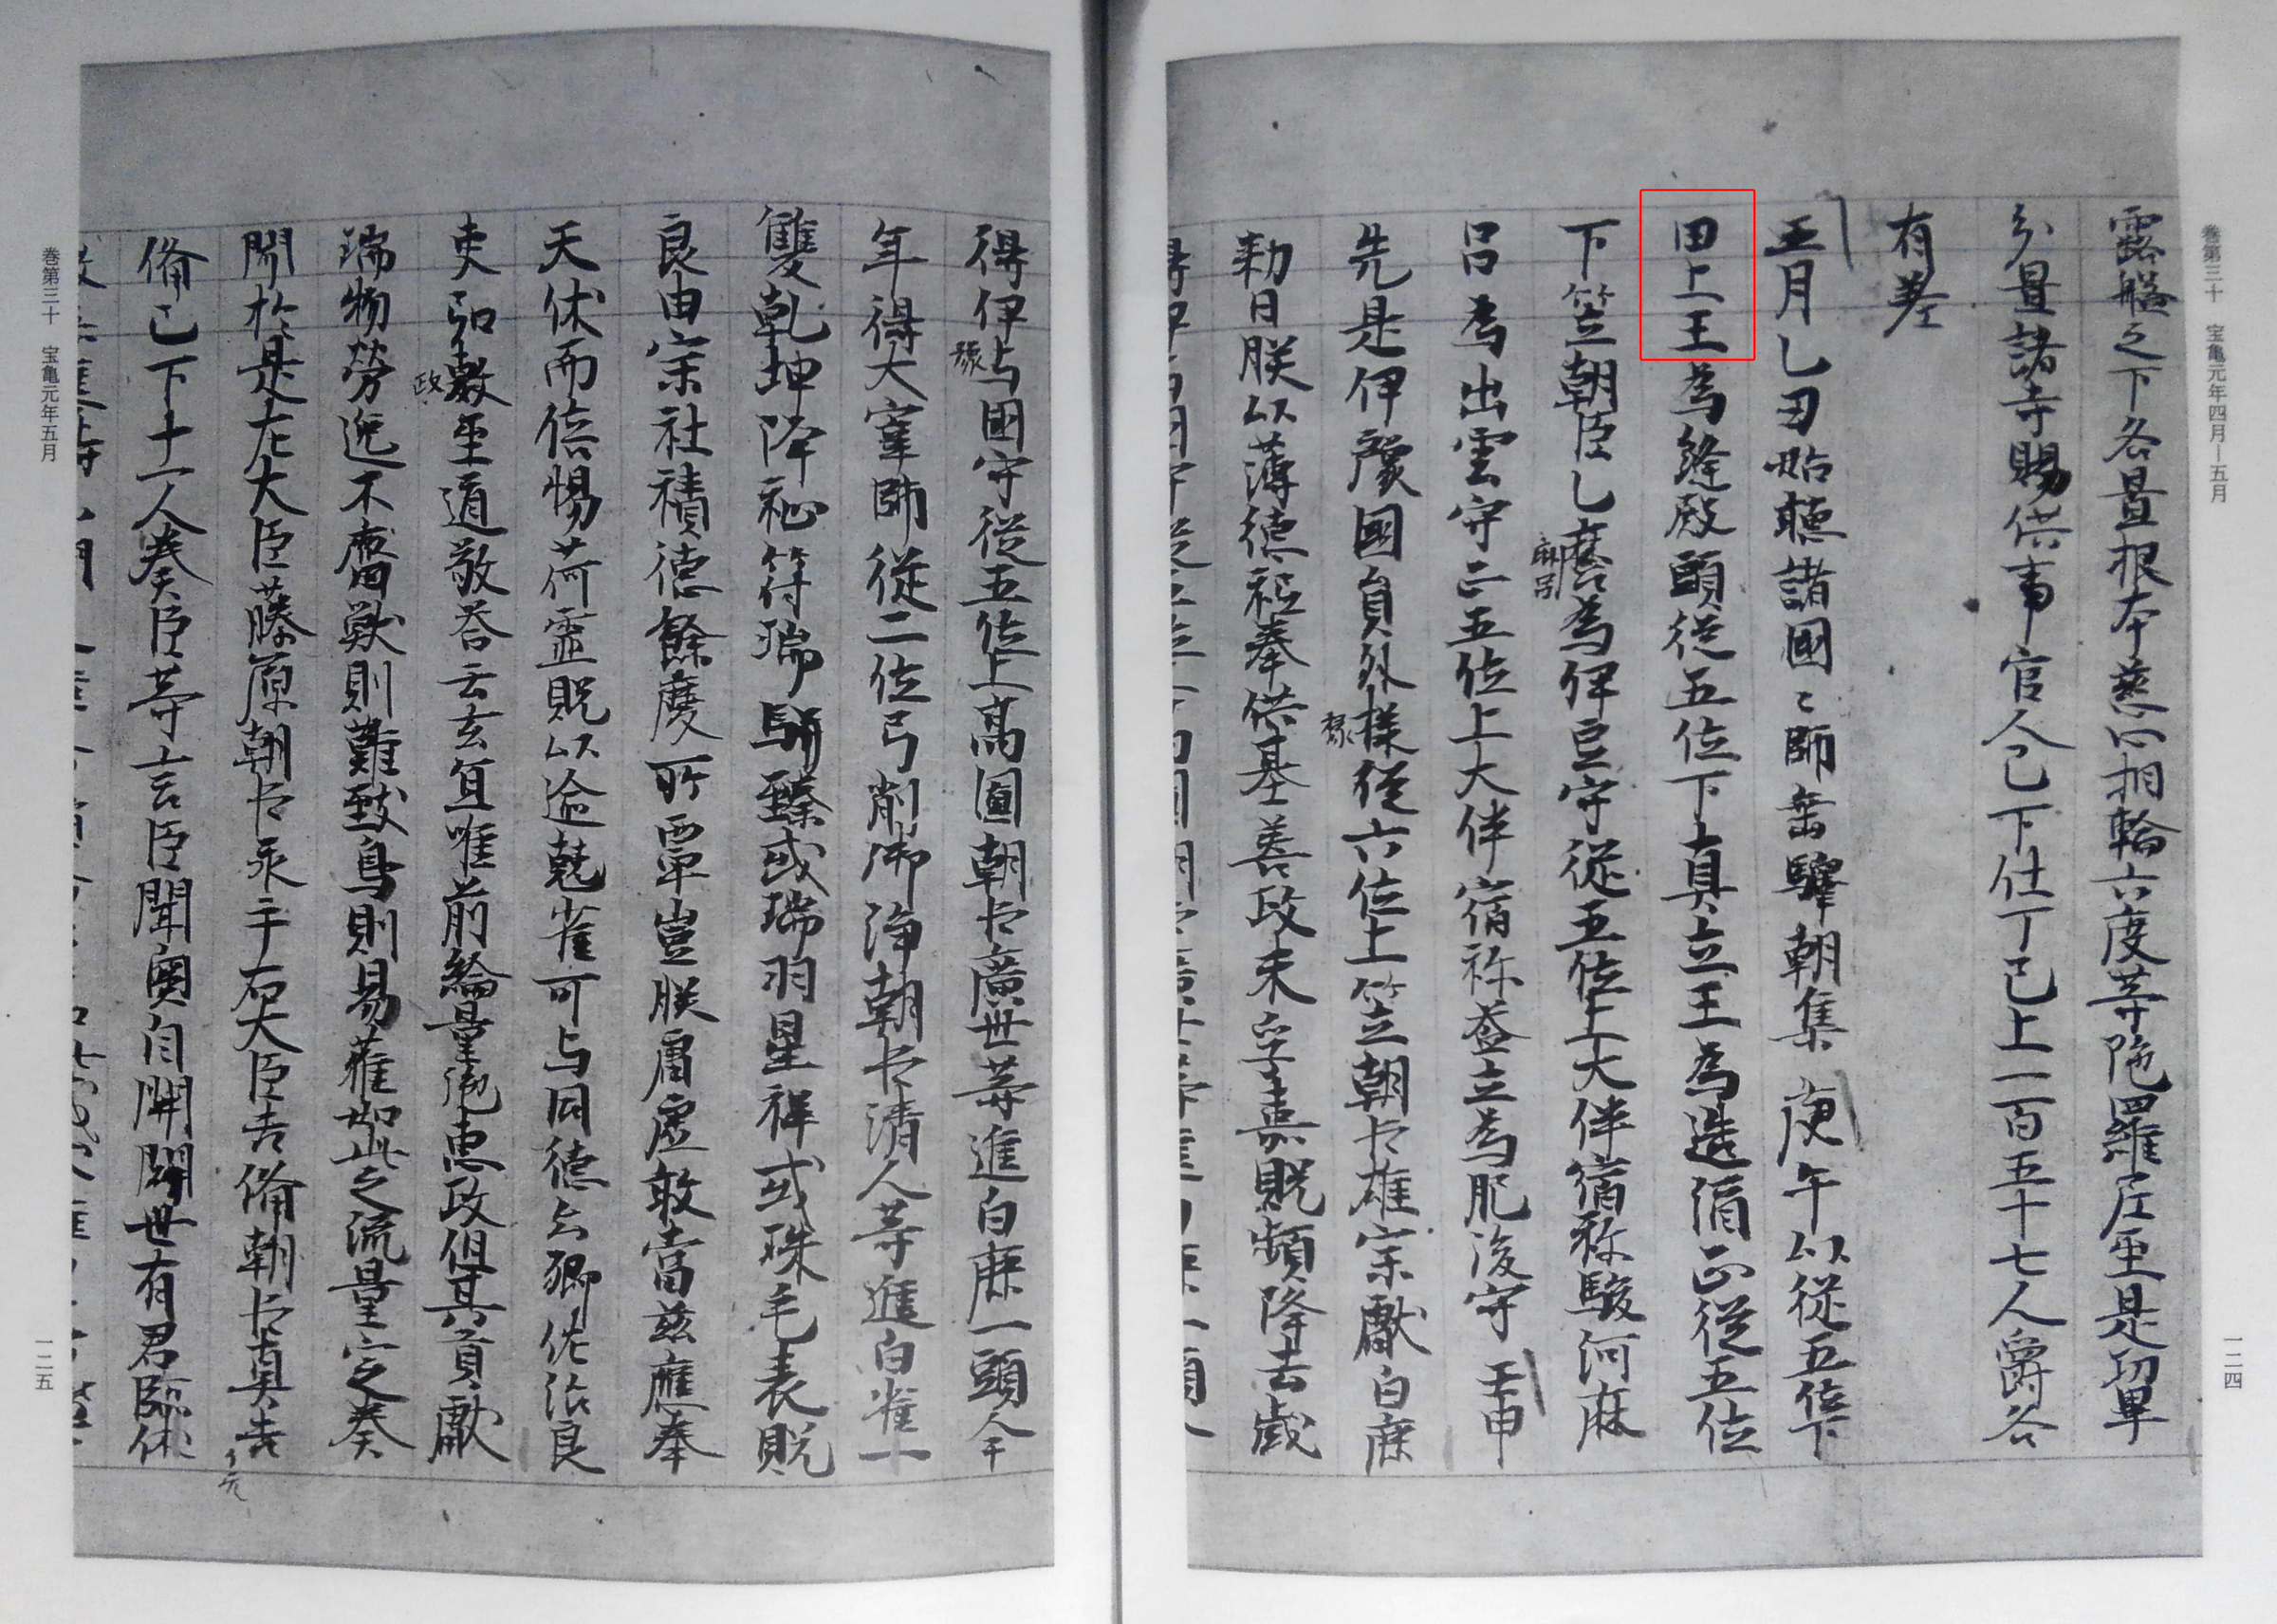 巻第三十　宝亀元年四月―五月
露盤之下各置根本慈心相輪六度等陁羅尼至是功畢
分置諸寺賜供事官人已下仕丁已上一百五十七人爵各
有差
五月乙丑始聴諸國〻師乗驛朝集 庚午以従五位下
田上王為縫殿頭従五位下真立王為造酒正従五位
下笠朝臣乙麿為伊豆守従五位上大伴宿祢駿河麻
麻呂
呂為出雲守正五位上大伴宿祢益立為肥後守 壬申
先是伊豫國員外掾従六位上笠朝臣雄宗獻白鹿
掾
勅曰朕以薄徳祗奉洪基善政未孚嘉貺頻降去歳
一二四
得伊与國守従五位上高圓朝臣廣世等進白鹿一頭今
豫
年得大宰帥従二位弓削御浄朝臣清人等進白雀一
雙乾坤降祉符瑞駢臻或瑞羽呈祥或珠毛表貺
良由宗社積徳餘慶所覃豈朕庸虚敢當茲應奉
天休而倍惕荷靈貺以逾兢雀可与同徳云卿佐治良
吏弘敷至道敬答云玄宜唯前綸量施恵政但其貢獻
政
瑞物労逸不齊獣則難致鳥則易獲如此之流量定之奏
聞於是左大臣藤原朝臣永手右大臣吉備朝臣真吉
備已下十一人奏臣等言臣聞奥自開闢世有君臨休
巻第三十　宝亀元年五月
一二五